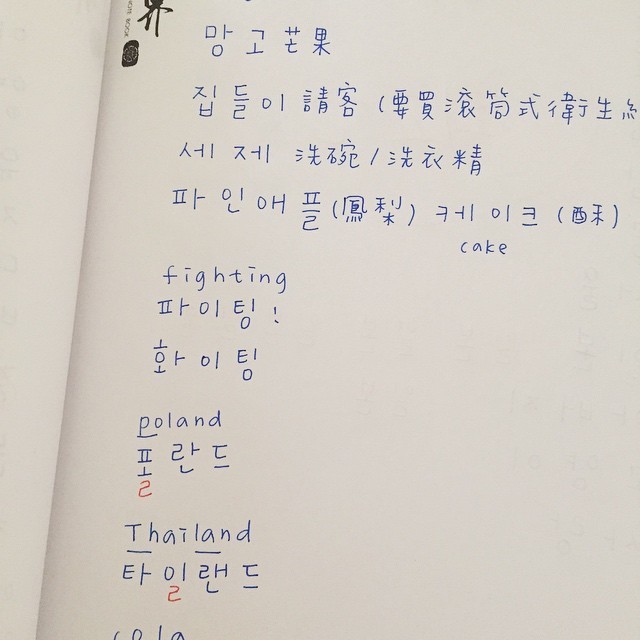 界
NOTE BOOK
망고芒果
집들이請客(要買滾筒式衛生紙
세제 洗碗/洗衣精
파인애플(鳳梨) 케이크(酥)
cake
fighting
파이팅!
화이팅
poland
포란드
ㄹ
Thailand
타이랜드
ㄹ
cola